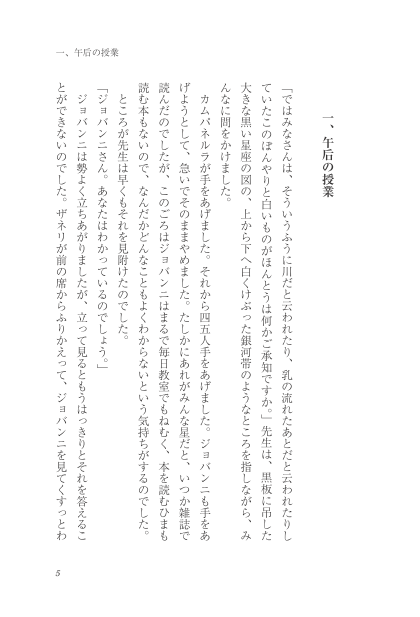 一、午后の授業
一、午后の授業
「ではみなさんは、そういうふうに川だと云われたり、乳の流れたあとだと云われたりし
ていたこのぼんやりと白いものがほんとうは何かご承知ですか。」先生は、黒板に吊した
大きな黒い星座の図の、上から下へ白くけぶった銀河帯のようなところを指しながら、み
んなに問をかけました。
カムパネルラが手をあげました。それから四五人手をあげました。ジョバンニも手をあ
げようとして、急いでそのままやめました。たしかにあれがみんな星だと、いつか雑誌で
読んだのでしたが、このごろはジョバンニはまるで毎日教室でもねむく、本を読むひまも
読む本もないので、なんだかどんなこともよくわからないという気持ちがするのでした。
ところが先生は早くもそれを見附けたのでした。
「ジョバンニさん。あなたはわかっているのでしょう。」
ジョバンニは勢よく立ちあがりましたが、立って見るともうはっきりとそれを答えるこ
とができないのでした。ザネリが前の席からふりかえって、ジョバンニを見てくすっとわ
5